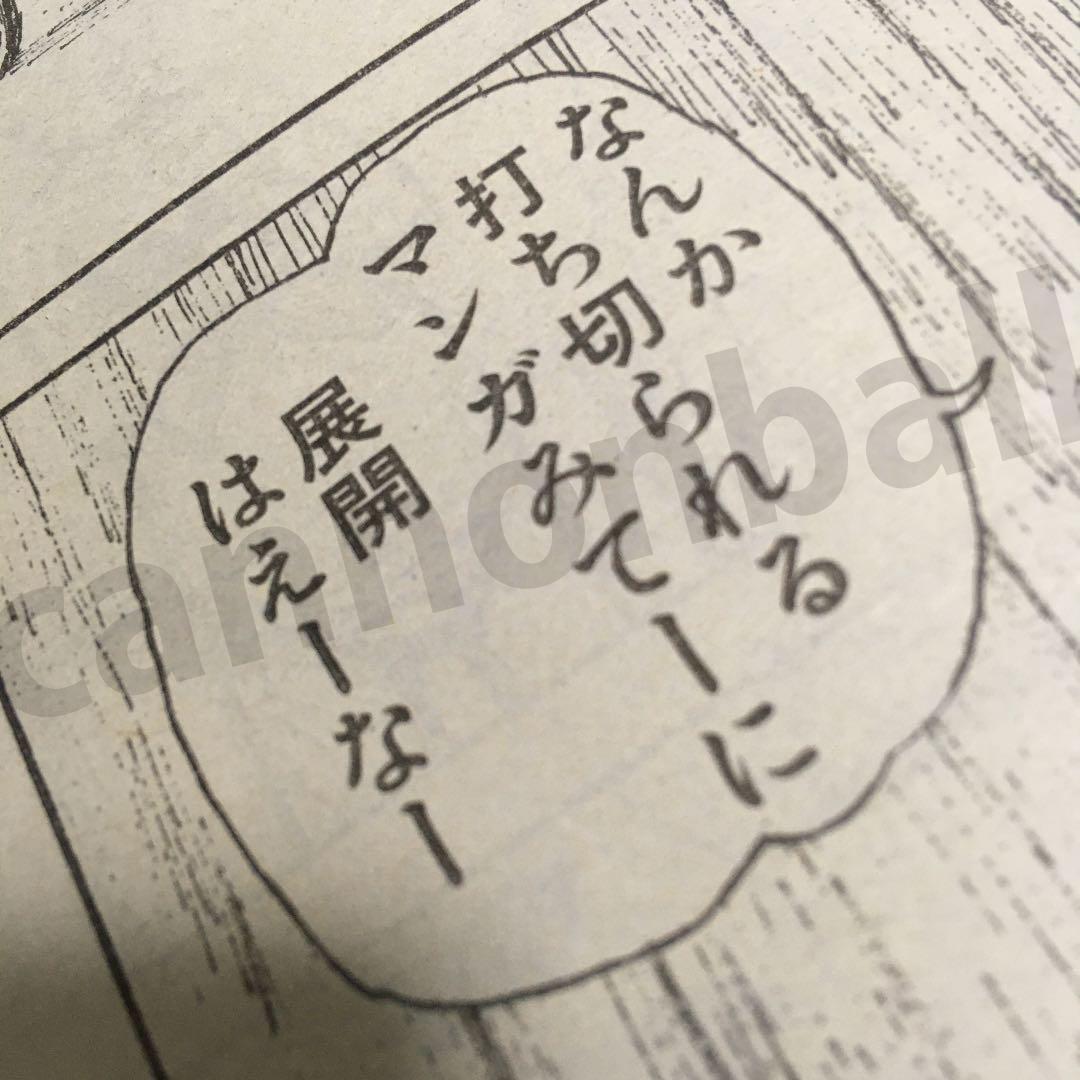 なんか
打ち切られる
マンガみてーに
展開
はえーなー
cannonball